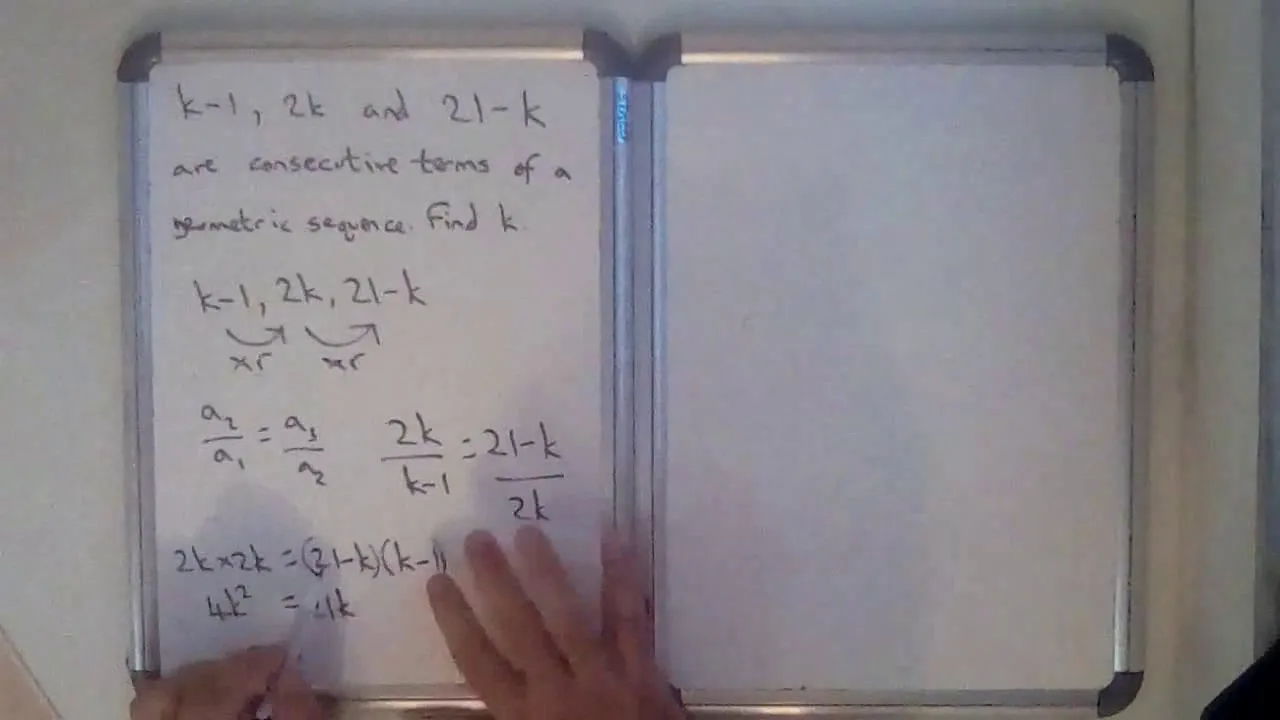 k-1, 2k and 21-k
are consecutive terms of a
geometric sequence. Find k.
k-1, 2k, 21-k
×r ×r
a₂/a₁ = a₃/a₂ 2k/k-1 = 21-k/2k
2k×2k = (21-k)(k-1)
4k² = 1k